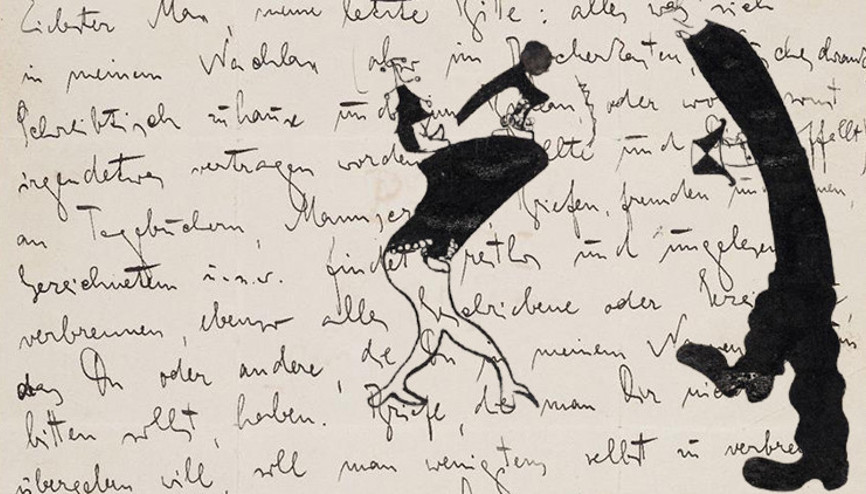 Liebster Max, meine letzte Bitte: alles was sich
in meinem Nachlass (also im
Schreibtisch zuhause und im oder sonst
irgendetwas vertragen worden und
an Tagebüchern, Briefen, fremden und
Gezeichnetem u.s.w. findet restlos und ungelesen
verbrennen, ebenso alles Geschriebene oder
das Du oder andere, die Du in meinem Namen
bitten sollst, haben. Briefe, die man Dir
übergeben will, soll man wenigstens selbst zu